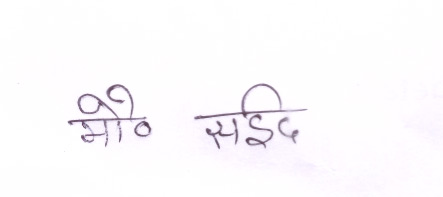 मो० सईद